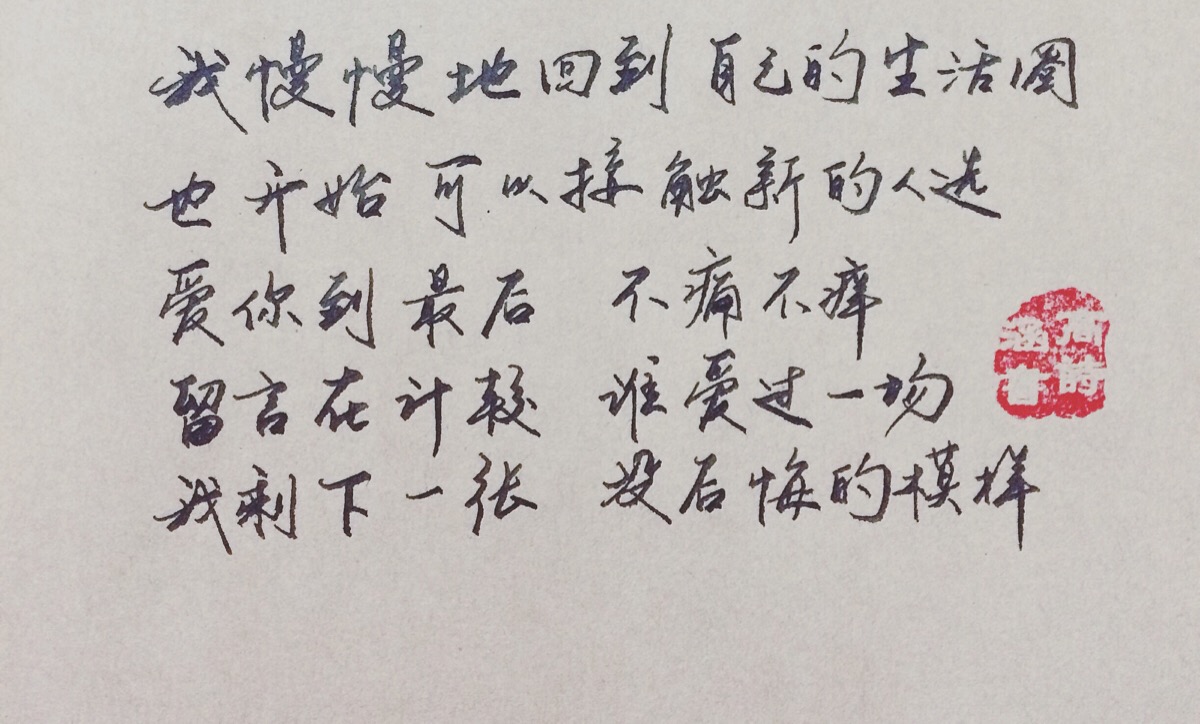 我慢慢地回到 自己的生活圈
也开始 可以接触新的人选
爱你到 最后 不痛不痒
留言在计较 谁爱过一场
我剩下一张 没后悔的模样